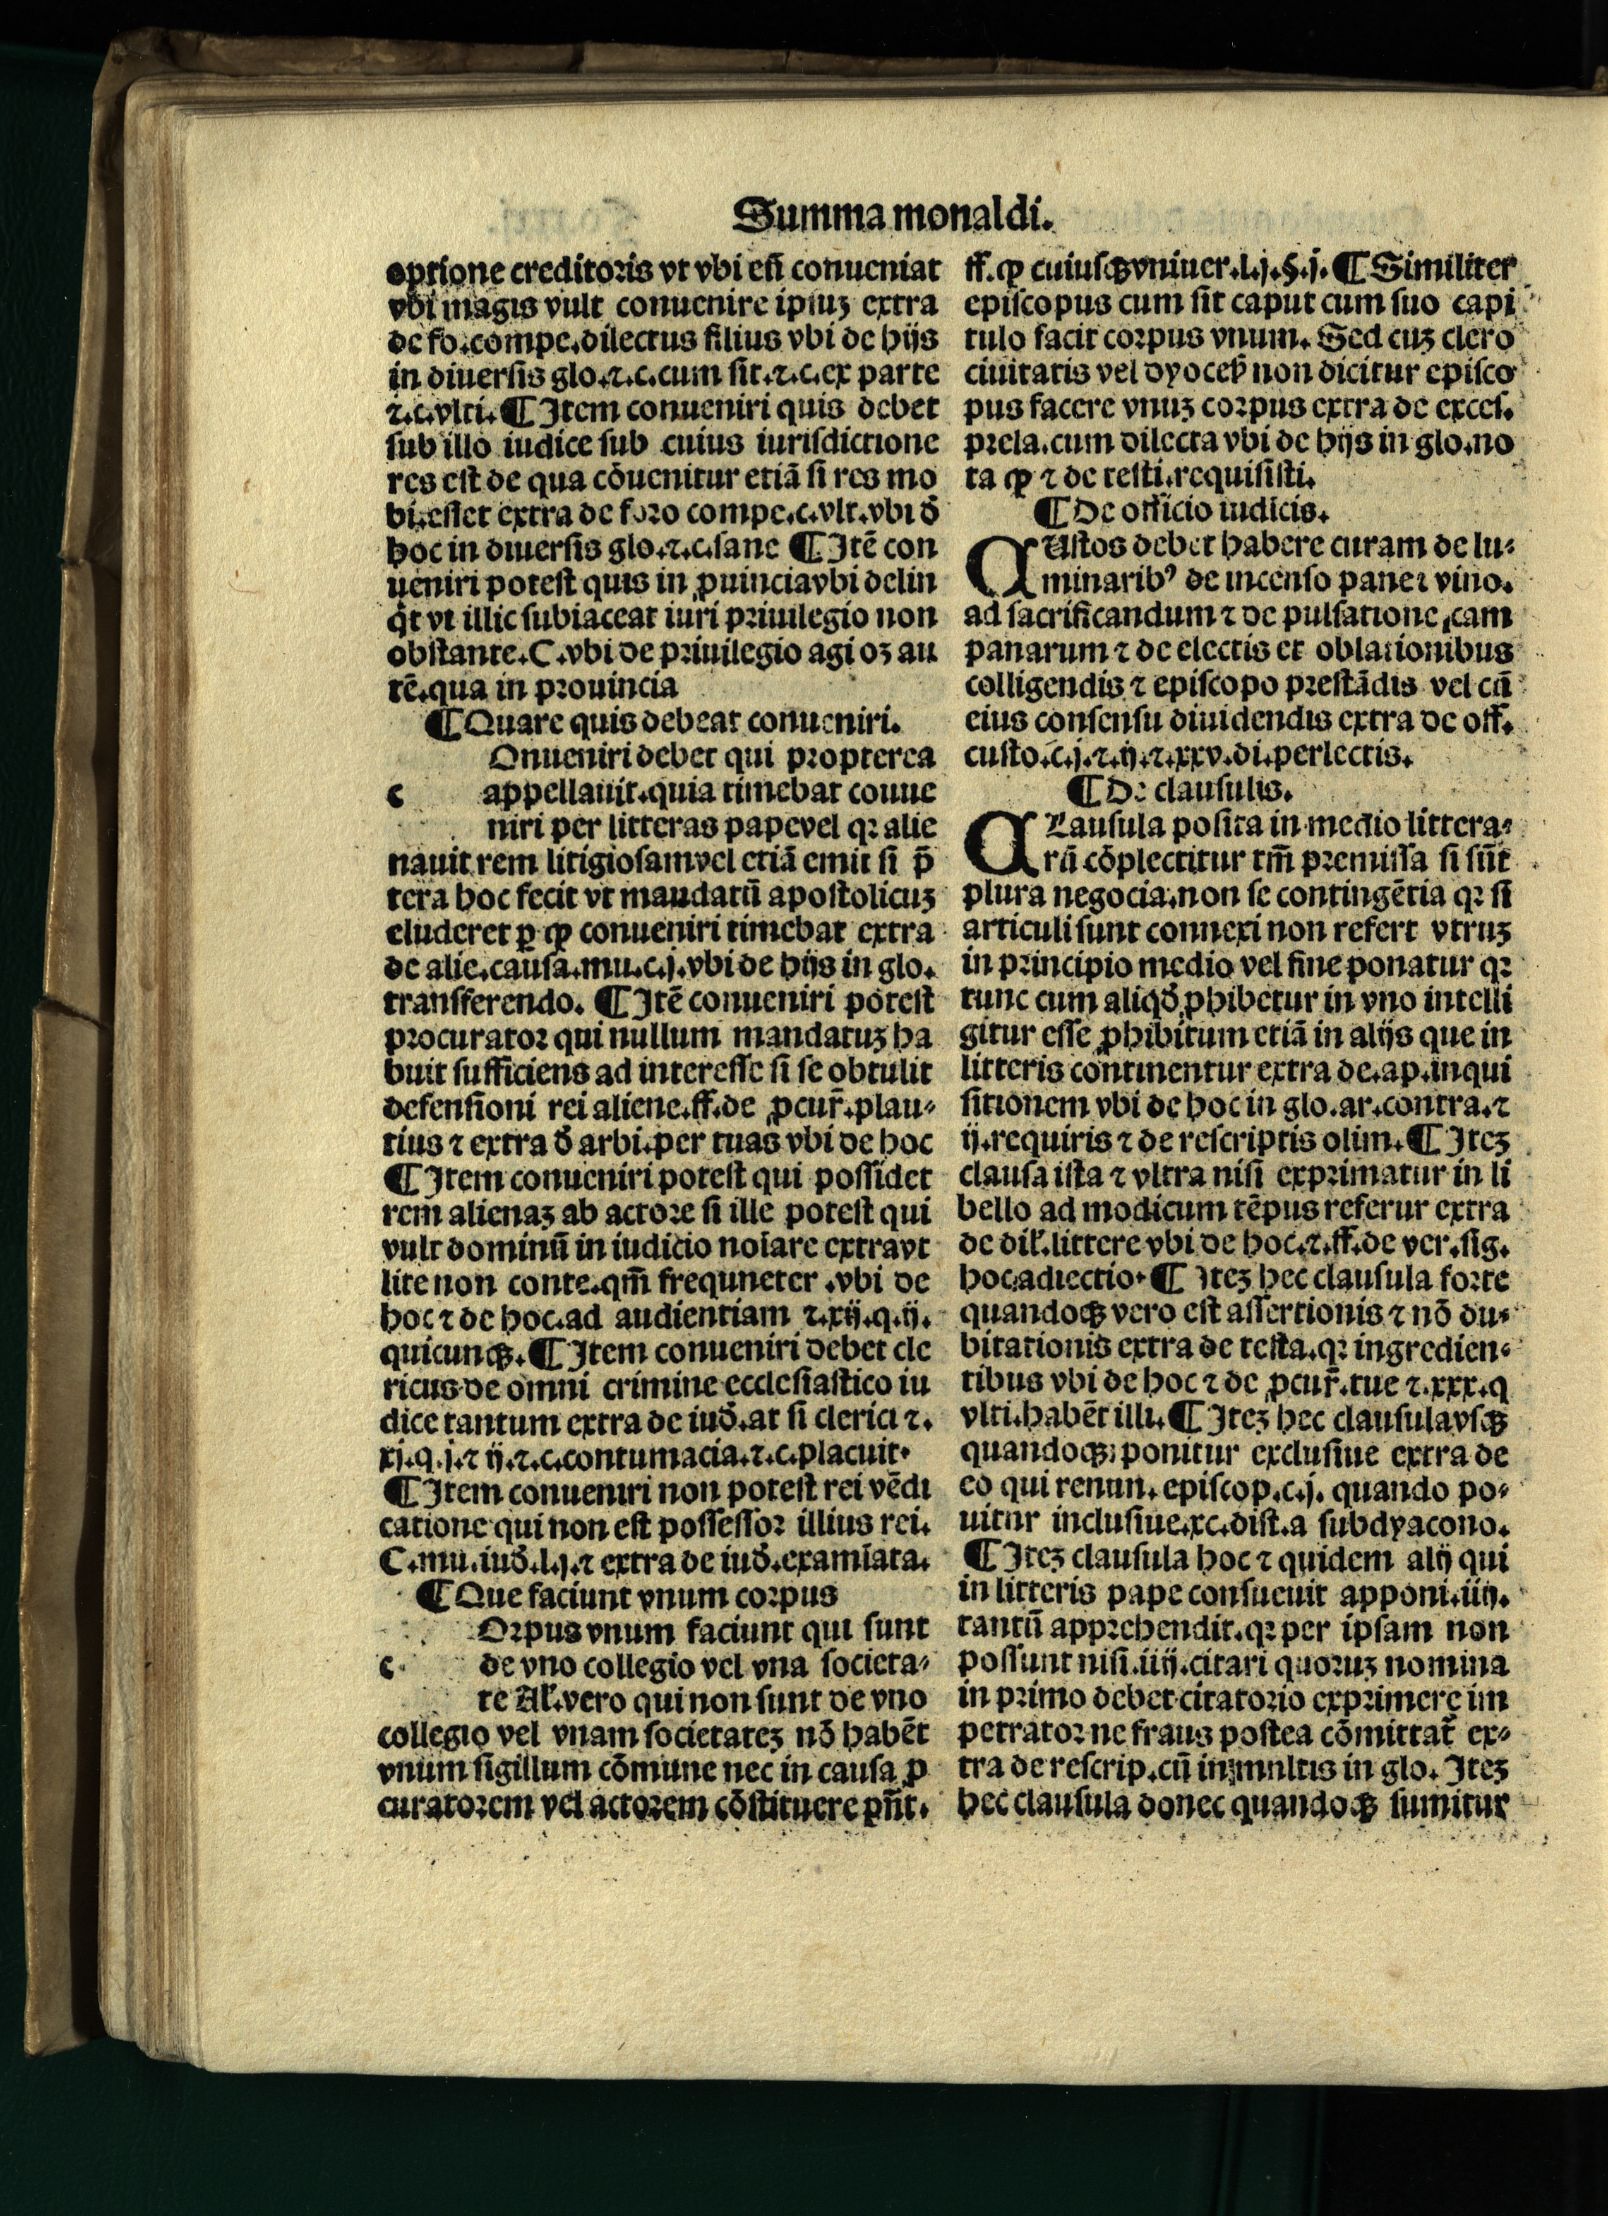 Summa monaldi.
optione creditoris vt vbi esi conueniat
vbi magis vult conuenire ipsuʒ extra
de fo.compe.dilectus filius vbi de hijs
in diuersis glo.⁊.c.cum sit.⁊.c.ex parte
⁊.c.vlti.¶Item conueniri quis debet
sub illo iudice sub cuius iurisdictione
res est de qua cõuenitur etiã si res mo
bi.esset extra de foro compe.c.vlt.vbi ð
hoc in diuersis glo.⁊.c.sane ¶Itẽ con
ueniri potest quis in ꝓuinciavbi delin
q̃t vt illic subiaceat iuri priuilegio non
obstante.C.vbi de priuilegio agi oʒ au
tẽ.qua in prouincia
¶Quare quis debeat conueniri.
Onueniri debet qui propterea
c appellauit.quia timebat conue
niri per litteras papevel qꝛ alie
nauit rem litigiosamvel etiã emit si p̃
tera hoc fecit vt mandatũ apostolicuʒ
eluderet ꝑ ꝙ conueniri timebat extra
de alie.causa.mu.c.j.vbi de hijs in glo.
transferendo. ¶Itẽ conueniri potest
procurator qui nullum mandatuʒ ha
buit sufficiens ad interesse si se obtulit
defensioni rei aliene.ff.de ꝓcur̃.plau⸗
tius ⁊ extra ð arbi.per tuas vbi de hoc
¶Item conueniri potest qui possidet
rem alienaʒ ab actore si ille potest qui
vult dominũ in iudicio noiare extravt
lite non conte.qm̃ frequneter .vbi de
hoc ⁊ de hoc.ad audientiam ⁊.xij.q.ij.
quicunqʒ.¶Item conueniri debet cle
ricus de omni crimine ecclesiastico iu
dice tantum extra de iuð.at si clerici ⁊.
xj.q.j.⁊ ij.⁊.c.contumacia.⁊.c.placuit.
¶Item conueniri non potest rei vẽdi
catione qui non est possessor illius rei.
C.mu.iuð.l.ij.⁊ extra de iuð.examiata.
¶Que faciunt vnum corpus
Orpus vnum faciunt qui sunt
c de vno collegio vel vna societa⸗
te Al̃.vero qui non sunt de vno
collegio vel vnam societateʒ nõ habẽt
vnum sigillum cõmune nec in causa ꝓ
curatorem vel actorem cõstituere pñt.
ff.ꝙ cuiusqʒvniuer.l.j.§.j.¶Similiter
episcopus cum sit caput cum suo capi
tulo facit corpus vnum. Sed cuʒ clero
ciuitatis vel dyoceß non dicitur episco
pus facere vnuʒ corpus extra de exces.
prela.cum dilecta vbi de hijs in glo.no
ta ꝙ ⁊ de testi.requisisti.
¶De officio iudicis.
CUstos debet habere curam de lu⸗
minarib⁹ de incenso pane⁊ vino.
ad sacrificandum ⁊ de pulsatione cam
panarum ⁊ de electis et oblationibus
colligendis ⁊ episcopo prestãdis vel cũ
eius consensu diuidendis extra de off.
custo.c.j.⁊.ij.⁊.xxv.di.perlectis.
¶De clausulis.
CLausula posita in medio littera⸗
rũ cõplectitur tm̃ premissa si sũt
plura negocia.non se contingẽtia qꝛ si
articuli sunt connexi non refert vtruʒ
in principio medio vel fine ponatur qꝛ
tunc cum aliqð ꝓhibetur in vno intelli
gitur esse ꝓhibitum etiã in alijs que in
litteris continentur extra de.ap.inqui
sitionem vbi de hoc in glo.ar.contra.⁊
ij.requiris ⁊ de rescriptis olim.¶Iteʒ
clausa ista ⁊ vltra nisi exprimatur in li
bello ad modicum tẽpus referur extra
de dil̃.littere vbi de hoc.⁊.ff.de ver.sig.
hoc.adiectio.¶Iteʒ hec clausula forte
quandoqʒ vero est assertionis ⁊ nõ du⸗
bitationis extra de testa.qꝛ ingredien⸗
tibus vbi de hoc ⁊ de ꝓcur̃.tue ⁊.xxx.q
vlti.habẽt illi.¶Iteʒ hec clausulavsqʒ
quandoqʒ ponitur exclusiue extra de
eo qui renun.episcop.c.j. quando po⸗
uitur inclusiue.xc.dist.a subdyacono.
¶Iteʒ clausula hoc ⁊ quidem alij qui
in litteris pape consueuit apponi.iij.
tantũ apprehendit.qꝛ per ipsam non
possunt nisi.iij.citari quoruʒ nomina
in primo debet citatorio exprimere im
petrator ne fraus postea cõmittat̃ ex⸗
tra de rescrip.cũ in mnltis in glo. Iteʒ
hec clausula donec quandoqʒ sumitur